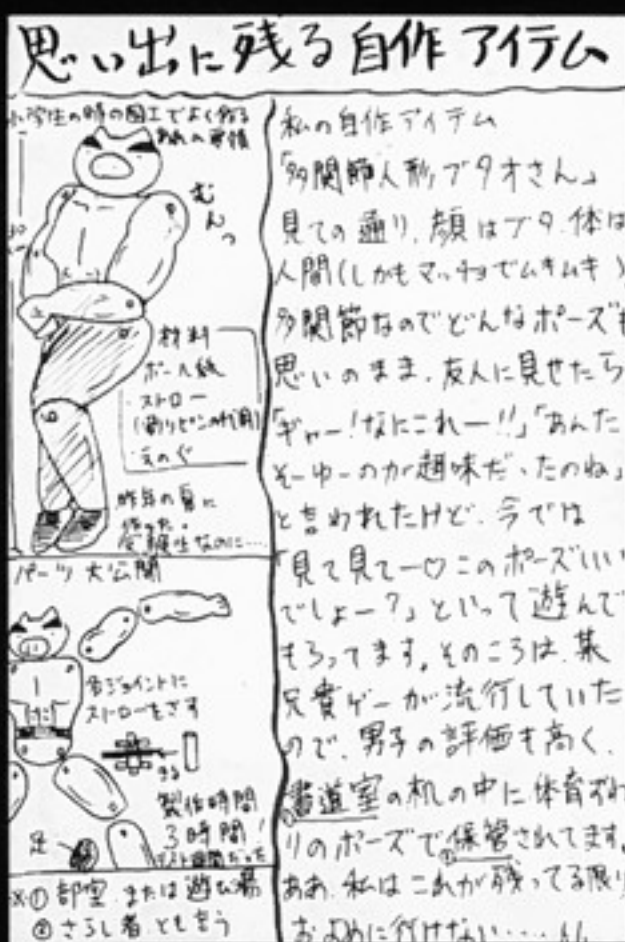 思い出に残る自作アイテム
小学生の時の図工でよく作る
むんっ
材料
ボール紙
・ストロー
(割りピンの代用)
・えのぐ
昨年の夏に
作った。
受験生なのに…
パーツ大公開
各ジョイントに
ストローをさす
きる
製作時間
3時間!
足
※① 部室 または遊び場
② さらし者 とも言う
私の自作アイテム
「多関節人形ブタオさん」
見ての通り、顔はブタ、体は
人間(しかもマッチョでムキムキ)
多関節なのでどんなポーズも
思いのまま、友人に見せたら
「ギャー!なにこれー!!」「あんた
そーゆーのが趣味だったのね」
と言われたけど、今では
「見て見てー♡このポーズいい
でしょー?」といって遊んで
もらってます。そのころは、某
兄貴ゲーが流行していた
ので、男子の評価も高く、
書道室の机の中に体育ずわ
りのポーズで保管されてます。
①
②
ああ、私はこれが残ってる限り
およめに行けない……